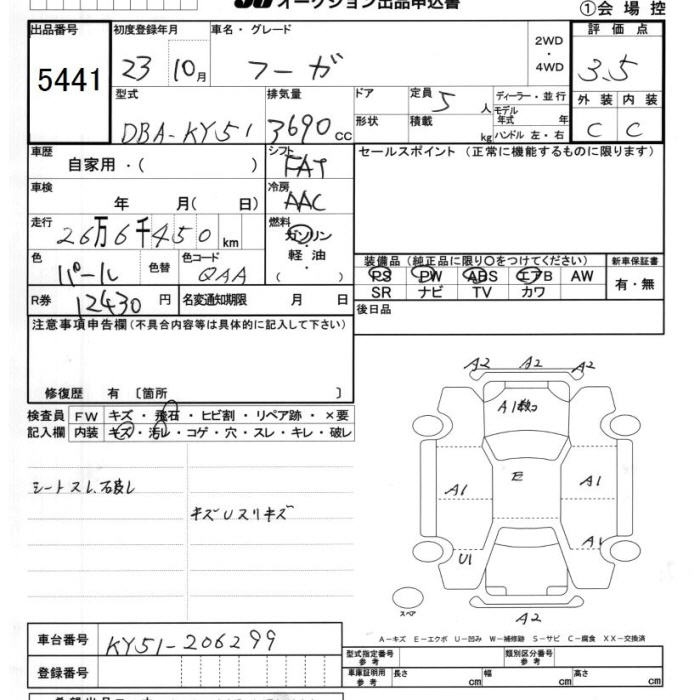 オークション出品申込書
①会場控
出品番号
5441
初度登録年月
23 10月
車名・グレード
フーガ
2WD
・
4WD
評価点
3.5
型式
DBA-KY51
排気量
3690cc
ドア
形状
定員
5人
積載
kg
ディーラー・並行
モデル年式 年
ハンドル 左・右
外装 内装
C C
車歴
自家用・( )
シフト
FAT
セールスポイント (正常に機能するものに限ります)
車検
年 月( 日)
冷房
AAC
走行
26万6千450km
燃料
ガソリン
軽油
( )
色
パール
色替
色コード
QAA
装備品 (純正品に限り○をつけてください)
PS PW ABS エアB AW
SR ナビ TV カワ
新車保証書
有・無
R券
12430円
名変通知期限 月 日
後日品
注意事項申告欄(不具合内容等は具体的に記入して下さい)
修復歴 有 〔箇所 〕
検査員 FW キズ・飛石・ヒビ割・リペア跡・×要
記入欄 内装 キズ・汚レ・コゲ・穴・スレ・キレ・破レ
キズUスリキズ
A2 A2 A2
E
A1 A1
A1
U1
スペア
A2
A−キズ E−エクボ U−凹み W−補修跡 S−サビ C−腐食 XX−交換済
車台番号
KY51-206299
登録番号
型式指定番号
参考
類別区分番号
参考
車庫証明用
参考
長さ cm 幅 cm 高さ cm